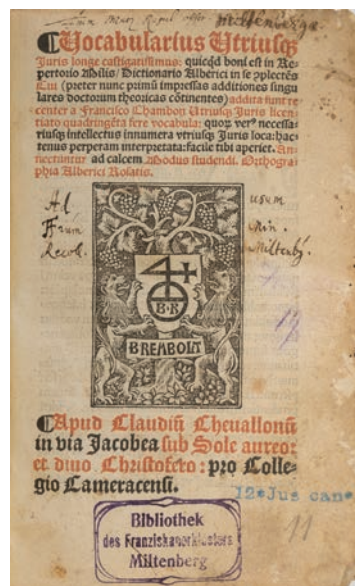 Vocabularius Utriusq;
Juris longe castigatissimus: quicqd boni est in Re-
pertorio Milis/ Dictionario Alberici in se cplectēs
Cui (preter nunc primū impressas additiones singu
lares doctorum theoricas cōtinentes) addita sunt re
center a Francisco Chambon Utriusq; Juris licen
tiato quadringēta fere vocabula: quorum
riusq; intellectus innumera vtriusq; Juris loca: hac-
tenus perperam interpretata: facile tibi aperiet. An-
nectuntur ad calcem Modus studendi. Orthogra-
phia Alberici Rosatis.
Ad usum
Frūm Min.
Recoll. Miltenb.
B·R
BREMBOLAT
Apud Claudiū Cheuallonū
in via Jacobea sub Sole aureo:
et diuo Christofero: pro Colle-
gio Cameracensi.
12*Jus can*
11
Bibliothek
des Franziskanerklosters
Miltenberg